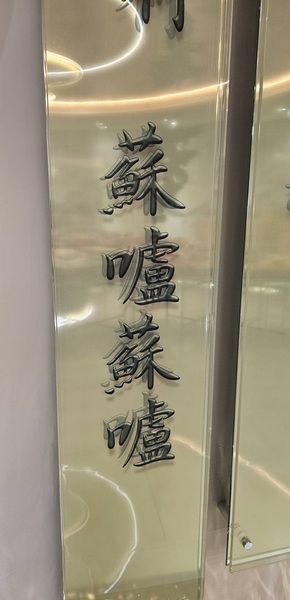 蘇嚧蘇嚧